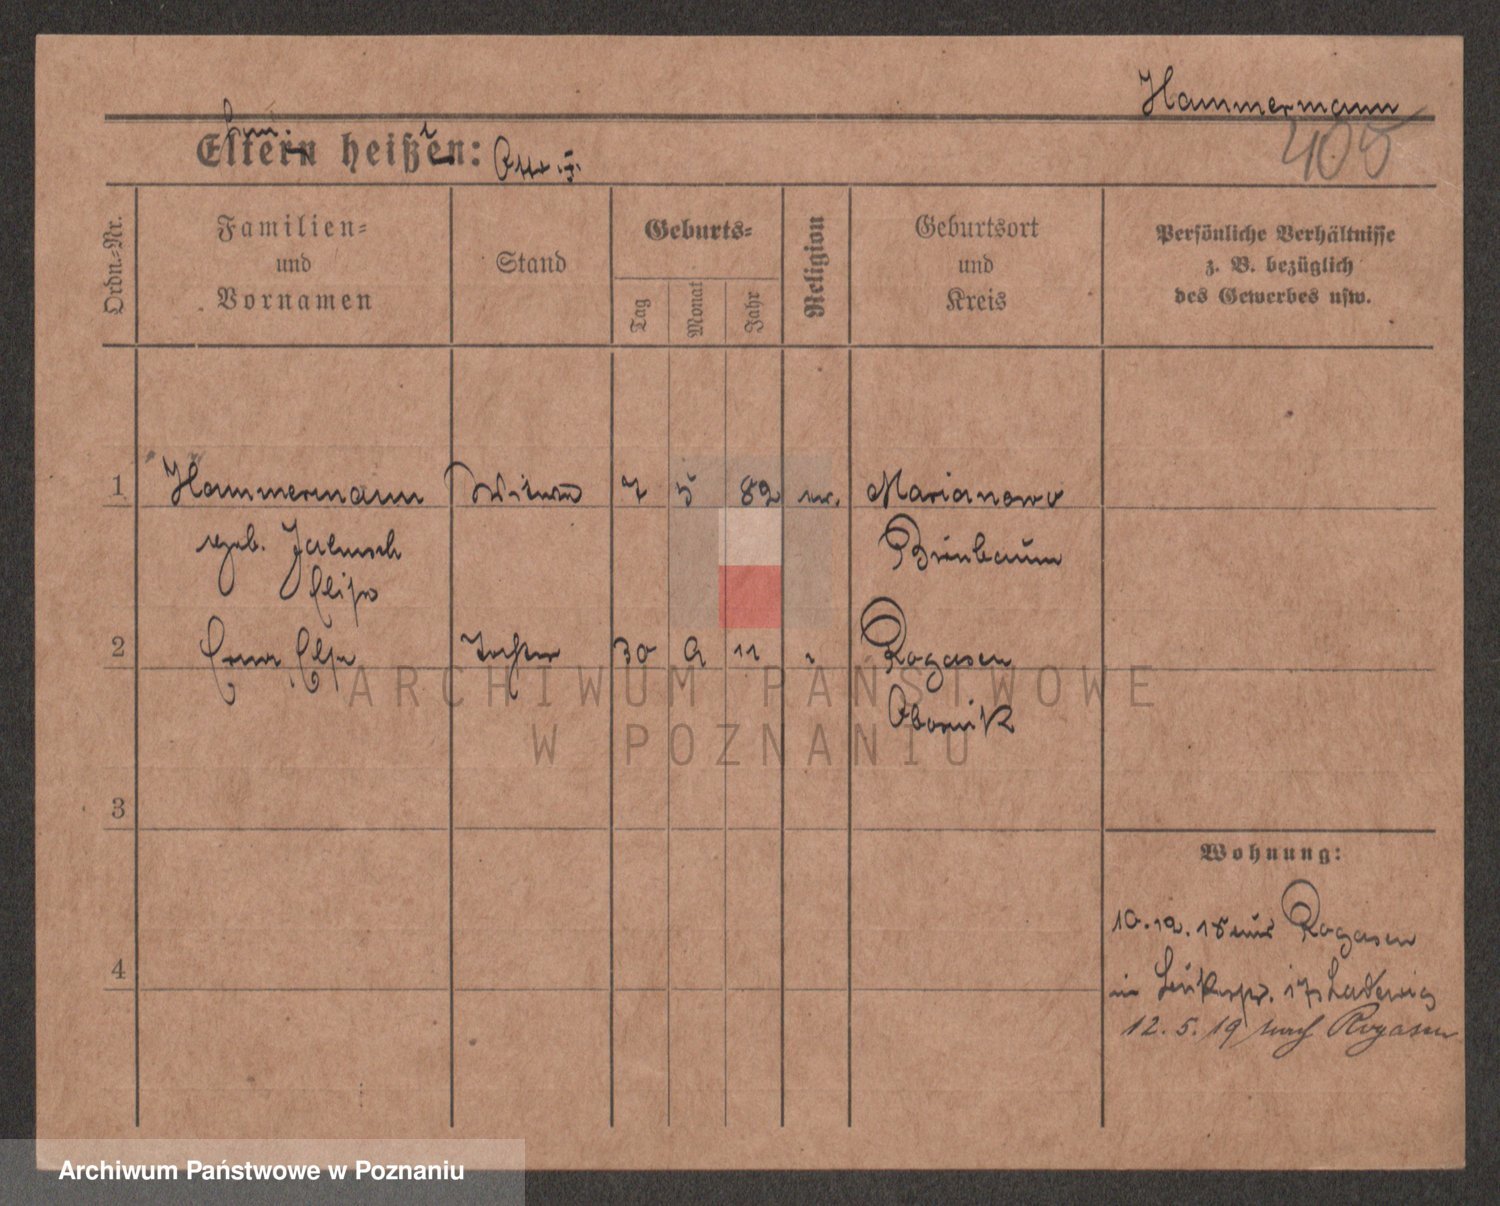 Hammermann
405
Eltern heißen: Otto
Ordn.-Nr.
Familien- und Vornamen
Stand
Geburts-
Tag
Monat
Jahr
Religion
Geburtsort und Kreis
Persönliche Verhältnisse
z. B. bezüglich
des Gewerbes usw.
1 Hammermann Witwe 7 5 82 ev. Marianowo
geb. Birnbaum
Elise
2 Erna Else Tochter 30 9 11 " Rogasen
Obornik
3
4
Wohnung:
10.12.18 aus Rogasen
in
12. 5. 19 nach Rogasen
ARCHIWUM PAŃSTWOWE
W POZNANIU
Archiwum Państwowe w Poznaniu